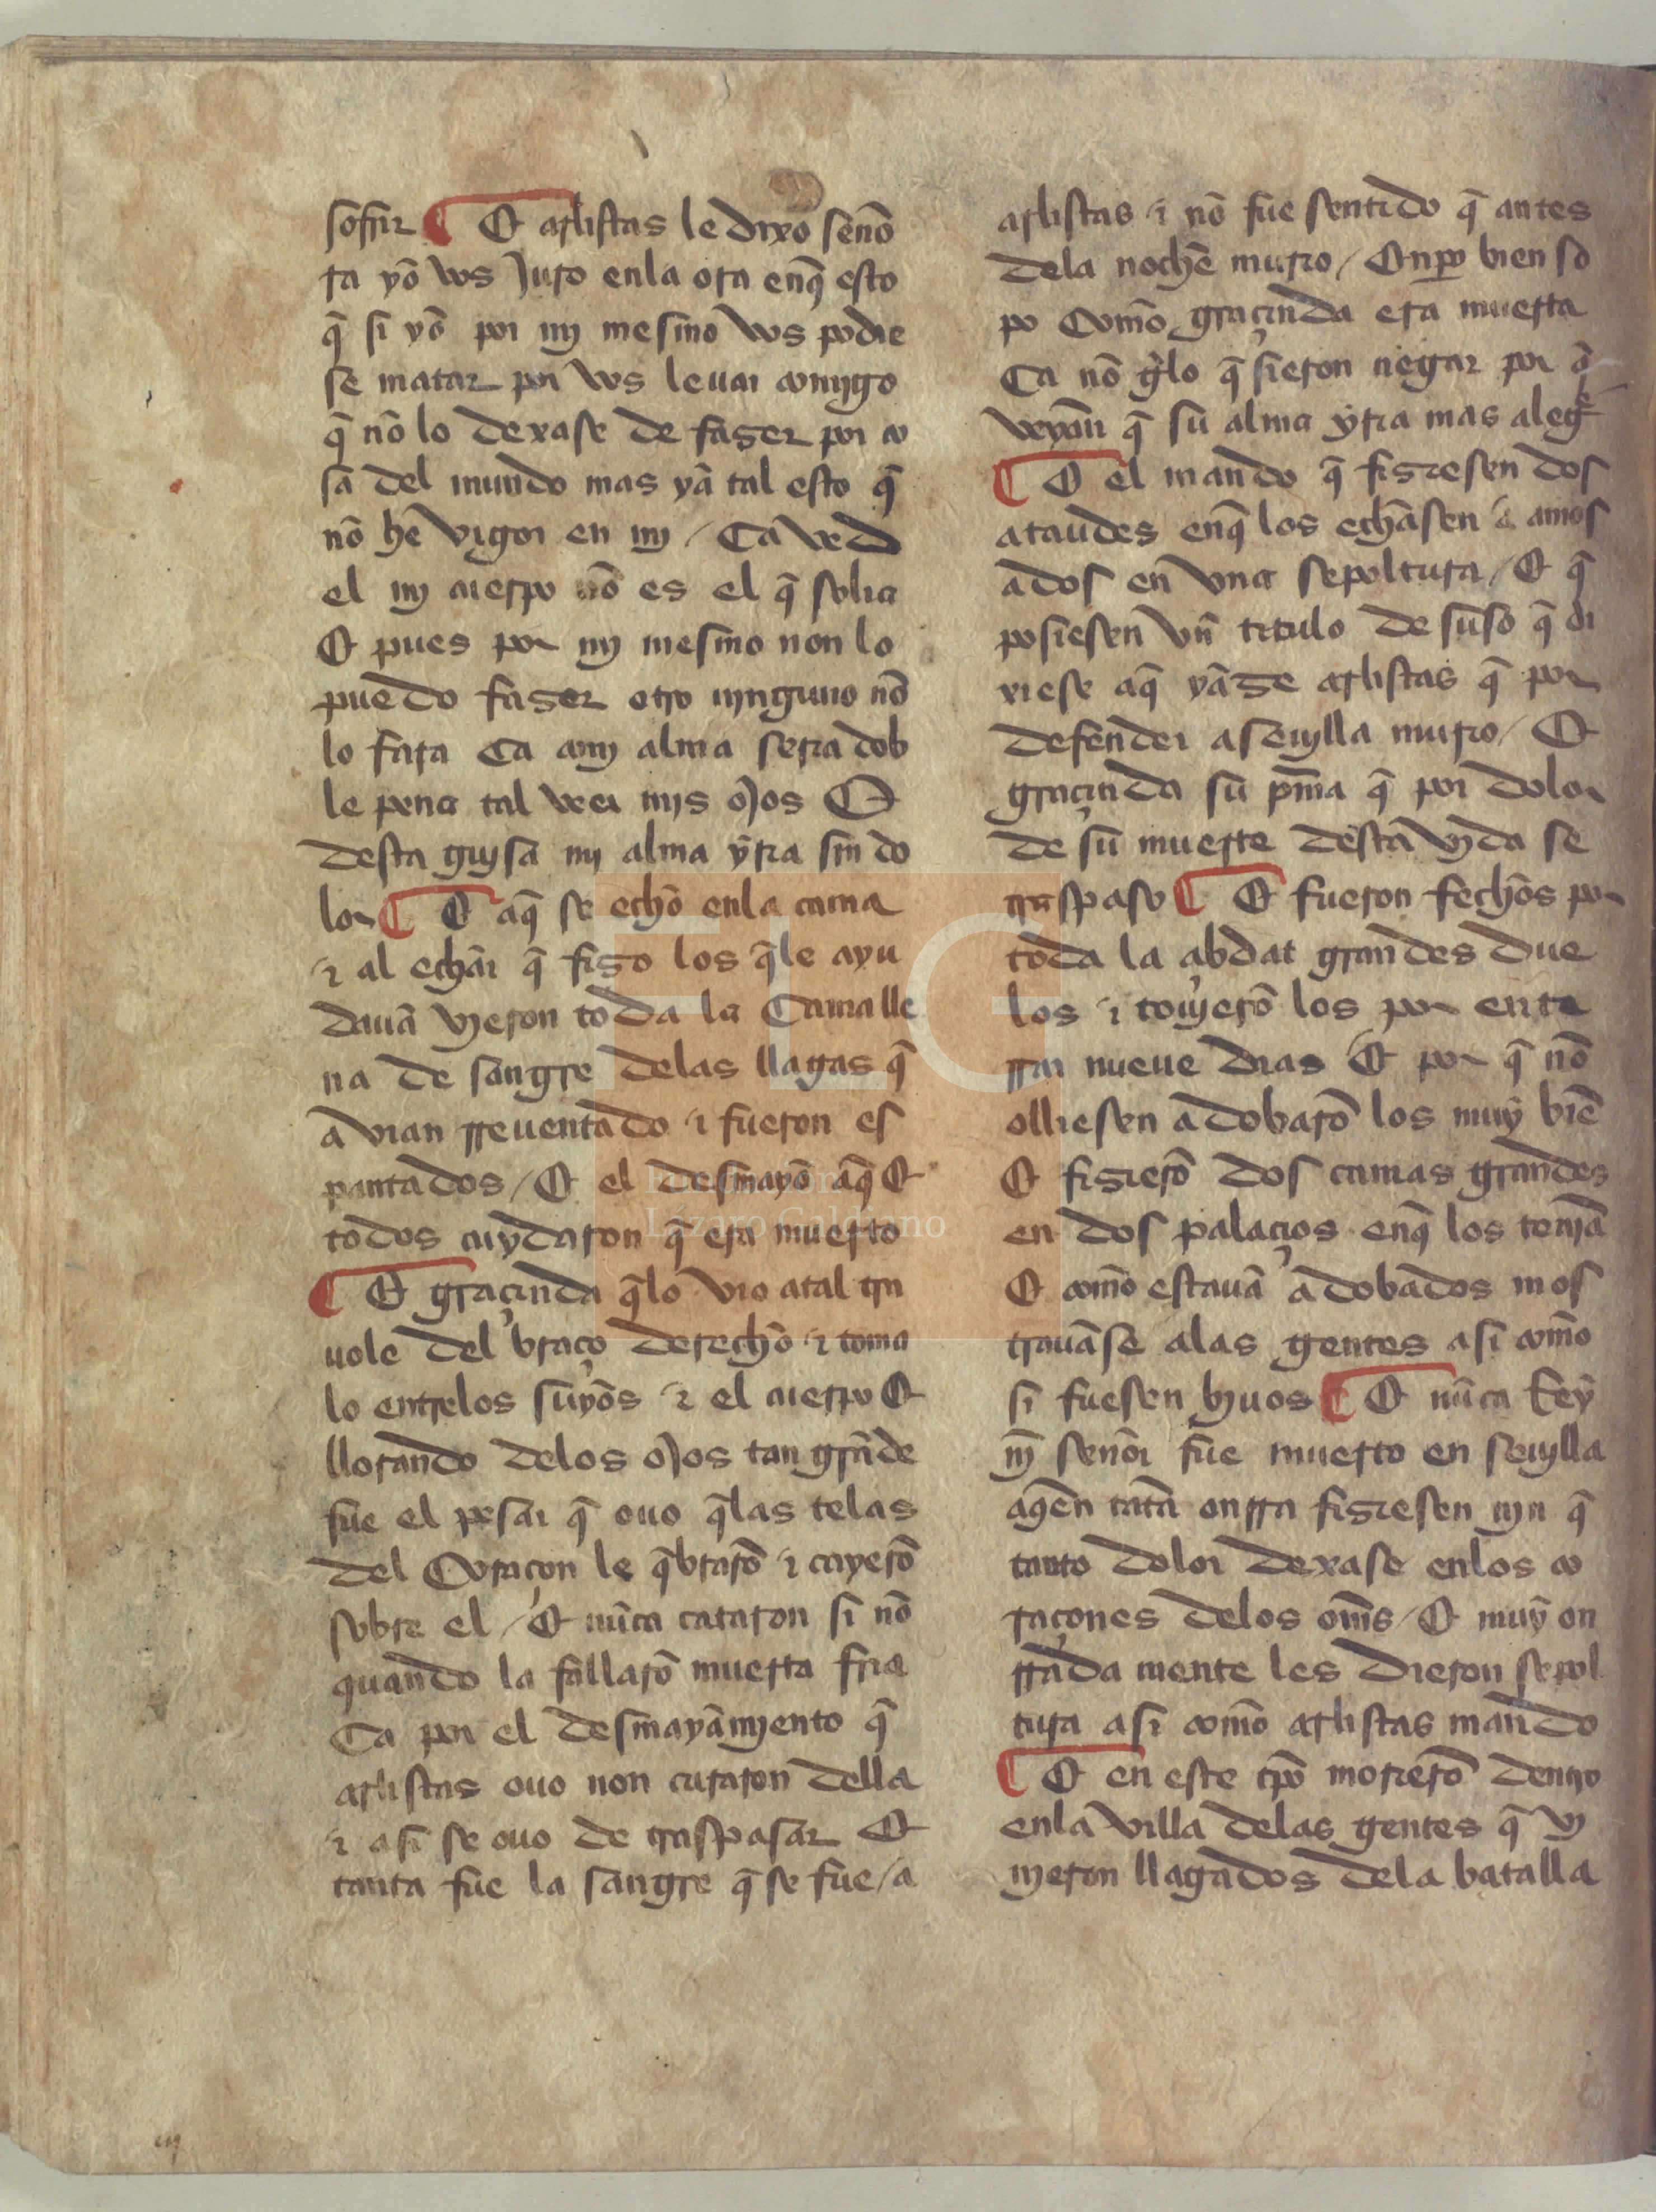 sofrir ¶ Et arlistas le dixo señó
ra yo vos Juro enla ora enq̃ esto
q̃ si yo por mj mesmo vos podie
se matar por vos leuar comjgo
q̃ nõ lo dexase de faser por co
sa del mundo mas ya tal esto q̃
nõ he vigor en mj / Ca ved
el mj cuerpo nõ es el q̃ solia
Et pues por mj mesmo non lo
puedo faser otro njnguno nõ
lo fara Ca amj alma sera dob
le pena tal veer mjs oJos Et
desta gujsa mj alma yra sin do
lor ¶ Et aq̃ se echo enla cama
τ al echar q̃ fiso los q̃le ayu
dauã vjeron toda la Cama lle
na de sangre delas llagas q̃
avian rreuentado τ fueron es
pantados / Et el desmayo aq̃ Et
todos cuydaron q̃ era muerto
¶ Et graçinda q̃lo vio atal tra
uole del braço derecho τ toma
lo entrelos suyos τ el cuerpo Et
llorando delos oJos tan grãde
fue el pesar q̃ ouo q̃las telas
del Coraçon le q̃braro᷈ τ cayerõ
sobre el / Et nũca cataron si nõ
quando la fallarõ muerta fria
Ca por el desmayamjento q̃
arlistas ouo non curaron della
τ asi se ouo de traspasar Et
tanta fue la sangre q̃ se fue / a
arlistas τ nõ fue sentido q̃ antes
dela noche murio / Enp̱o bien so
po Como graçinda era muerta
Ca nõ gelo q̃sieron negar por q̃
veyan q̃ su alma yra mas alegre
¶ Et el mando q̃ fisiesen dos
ataudes enq̃ los echasen a amos
ados en vna sepoltura / Et q̃
posiesen vñ titulo de suso q̃ di
xiese aq̃ yase arlistas q̃ por
defender aseujlla murio / Et
graçinda su p̃ma q̃ por dolor
de su muerte desta vjda se
traspaso ¶ Et fueron fechos por
toda la çibdat grandes due
los τ toujerõ los por ente
rrar nueue dias Et por q̃ nõ
oliesen adobarõ los muy biẽ
Et fisierõ dos camas grandes
en dos palaçios enq̃ los tenjã
Et como estauã adobados mos
trauãse alas gentes asi como
si fuesen bjuos ¶ Et nũca Rey
nj̃ señor fue muerto en seujlla
aqen tãta onrra fisiesen njn q̃
tanto dolor dexase enlos co
raçones delos om̃s / Et muy on
rrada mente les dieron sepol
tura asi como arlistas mando
¶ Et en este tp̃o morierõ dentro
enla villa delas gentes q̃ vj
njeron llagados dela batalla